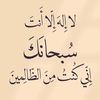 لا إله إلا أنت
سُبْحَانَكَ
إِنِّي كُنْتُ مِنَ الظَّالِمِينَ